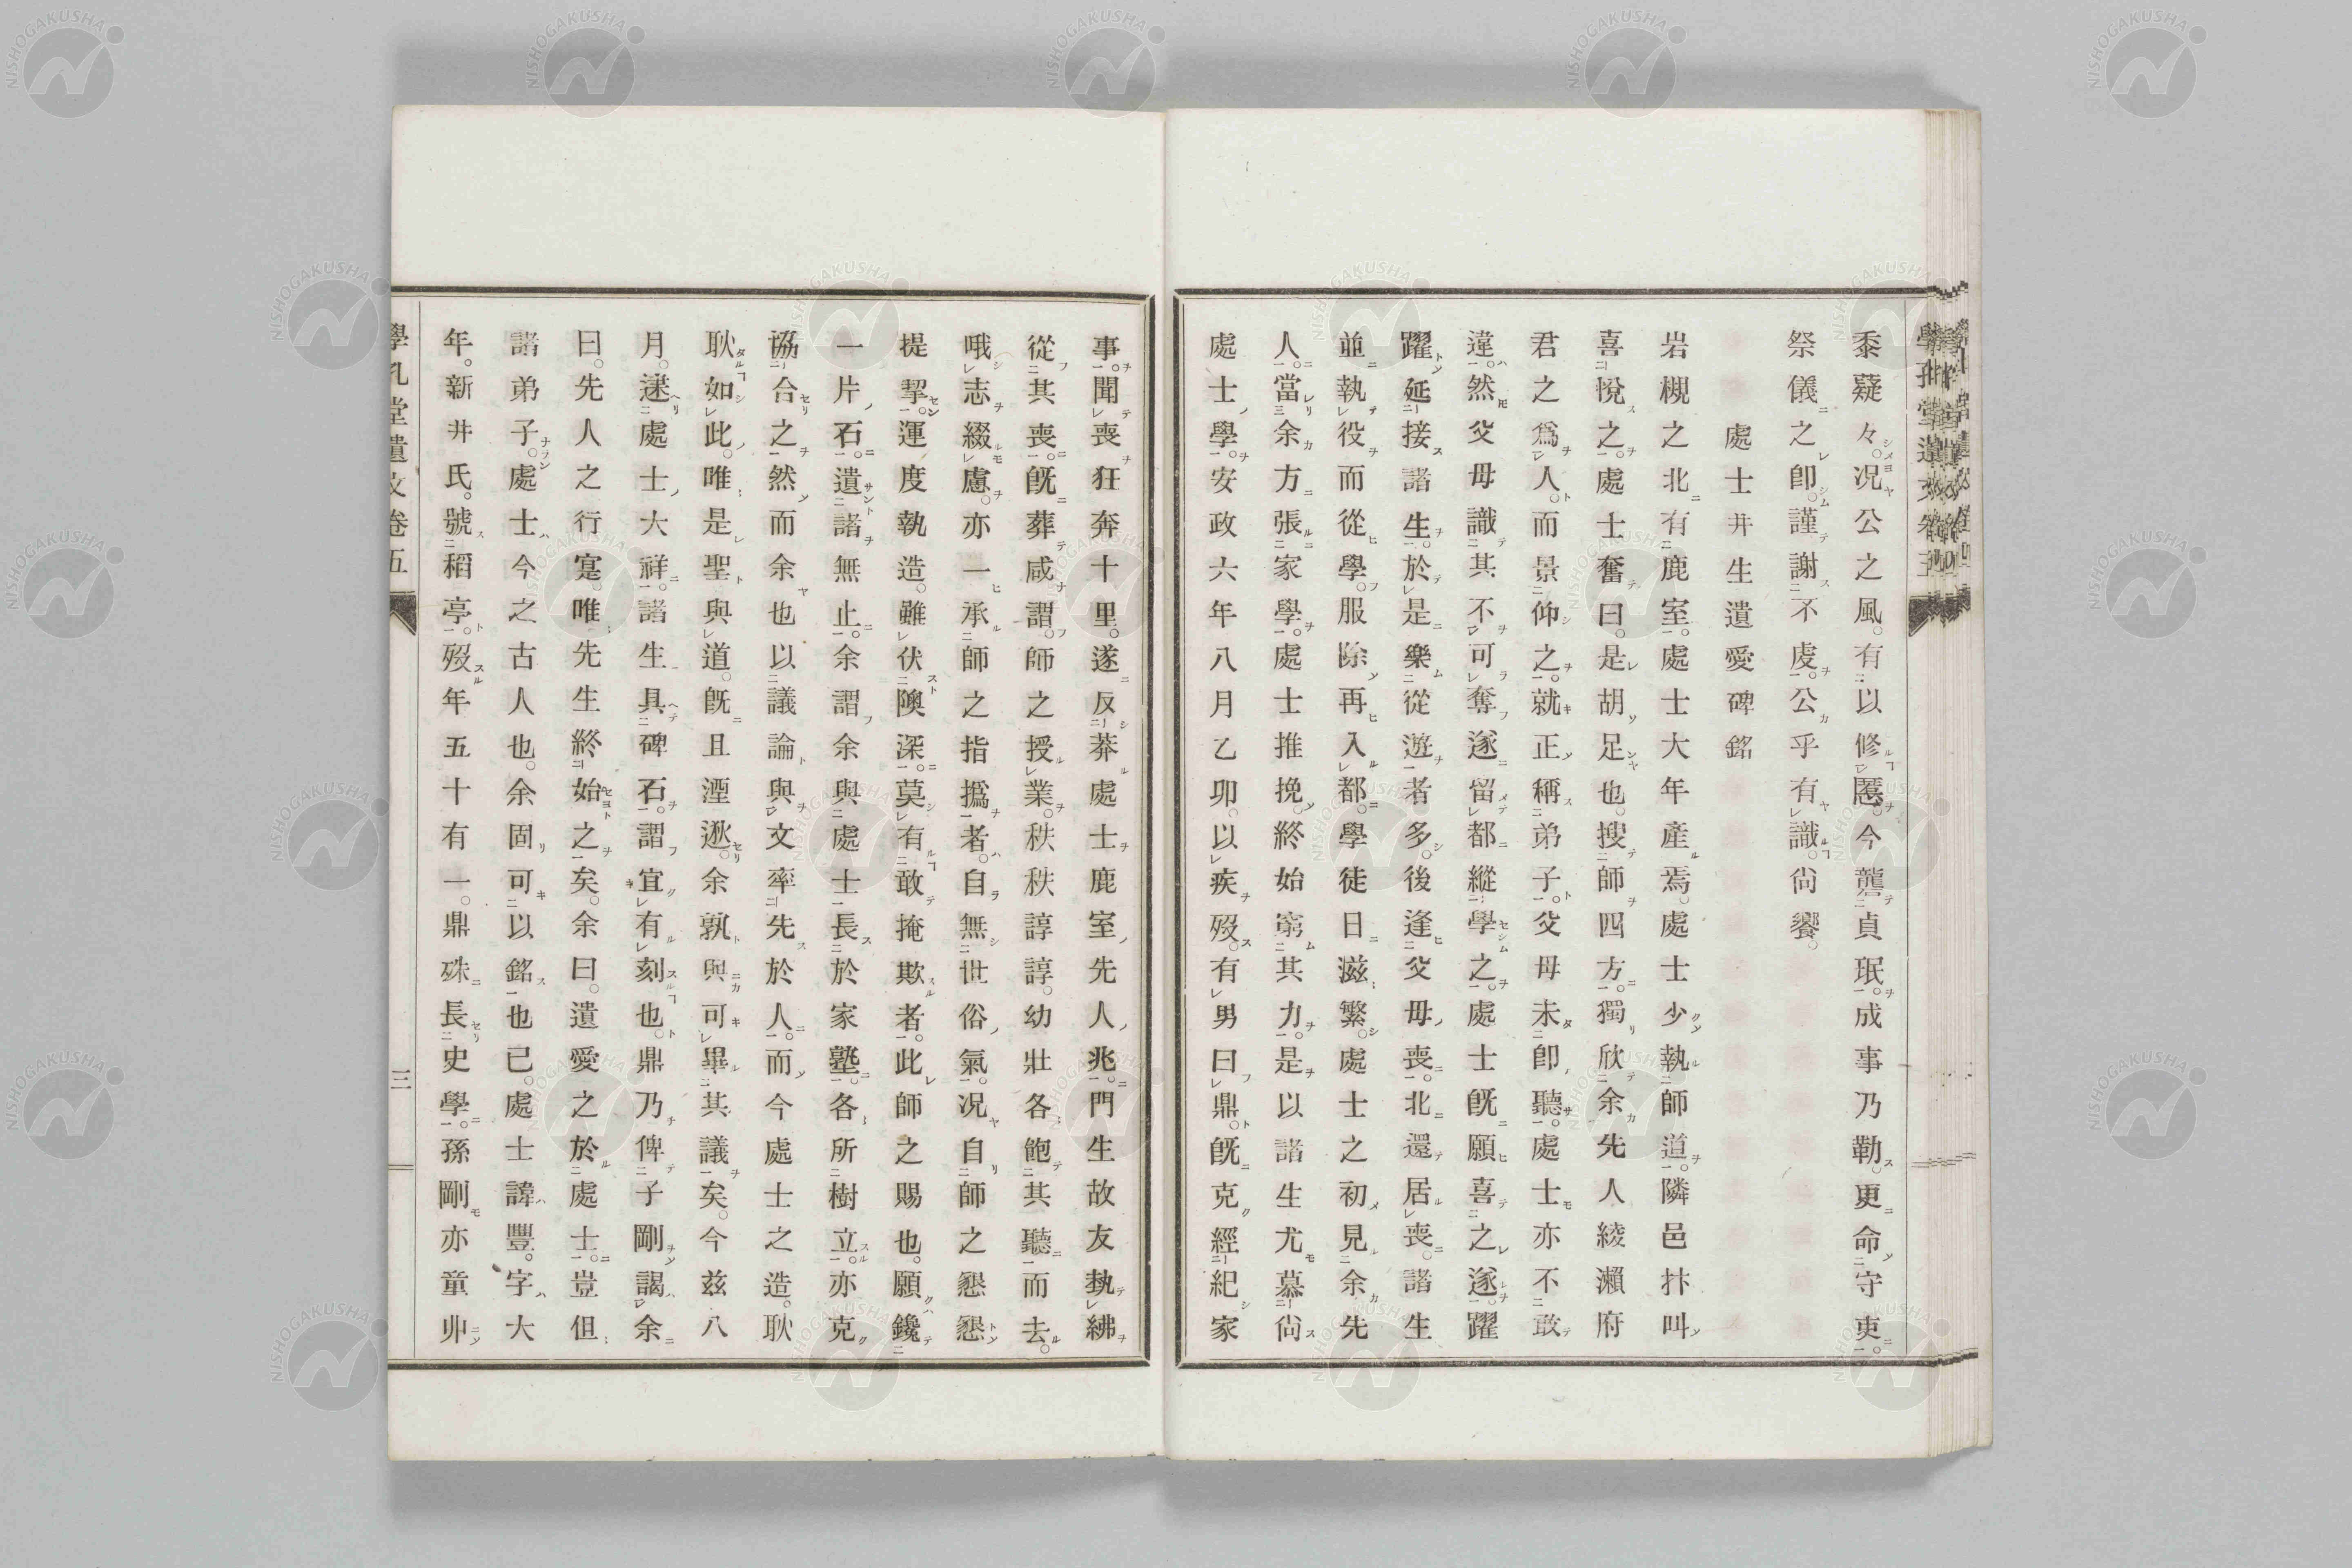 黍薿々。况公之風。有以修慝。今蘢貞珉。成事乃勒。更命守吏。
祭儀之卽。謹謝不虔。公乎有識。尙饗。
處士井生遺愛碑銘
岩槻之北有鹿室。處士大年產焉。處士少執師道。隣邑抃叫
喜悅之。處士奮曰。是胡足也。搜師四方。獨欣余先人綾瀨府
君之爲人。而景仰之。就正稱弟子。父母未卽聽。處士亦不敢
違。然父母識其不可奪。遂留都縱學之。處士旣願喜之遂。躍
躍延接諸生。於是樂從遊者多。後逢父母喪。北還居喪。諸生
並執役而從學。服除再入都。學徒日滋繁。處士之初見余先
人。當余方張家學。處士推挽。終始窮其力。是以諸生尤慕尙
處士學。安政六年八月乙卯。以疾歿。有男曰鼎。旣克經紀家
事。聞喪狂奔十里。遂反葬處士鹿室先人兆。門生故友執紼
從其喪。旣葬咸謂。師之授業。秩秩諄諄。幼壯各飽其聽而去。
哦志綴慮。亦一承師之指撝者。自無世俗氣。况自師之懇懇
提挈。運度執造。雖伏隩深。莫有敢掩欺者。此師之賜也。願鑱
一片石。遺諸無止。余謂余與處士長於家塾。各所樹立。亦克
協合之然而余也以議論與文率先於人。而今處士之造。耿
耿如此。唯是聖與道。旣且湮逖。余孰與可畢其議矣。今玆八
月。迷處士大祥。諸生具碑石。謂宜有刻也。鼎乃俾子剛謁余
曰。先人之行寔。唯先生終始之矣。余曰。遺愛之於處士。豈但
諸弟子。處士今之古人也。余固可以銘也已。處士諱豐。字大
年。新井氏。號稻亭。歿年五十有一。鼎硃長史學。孫剛亦童丱
學孔堂遺文卷五
三